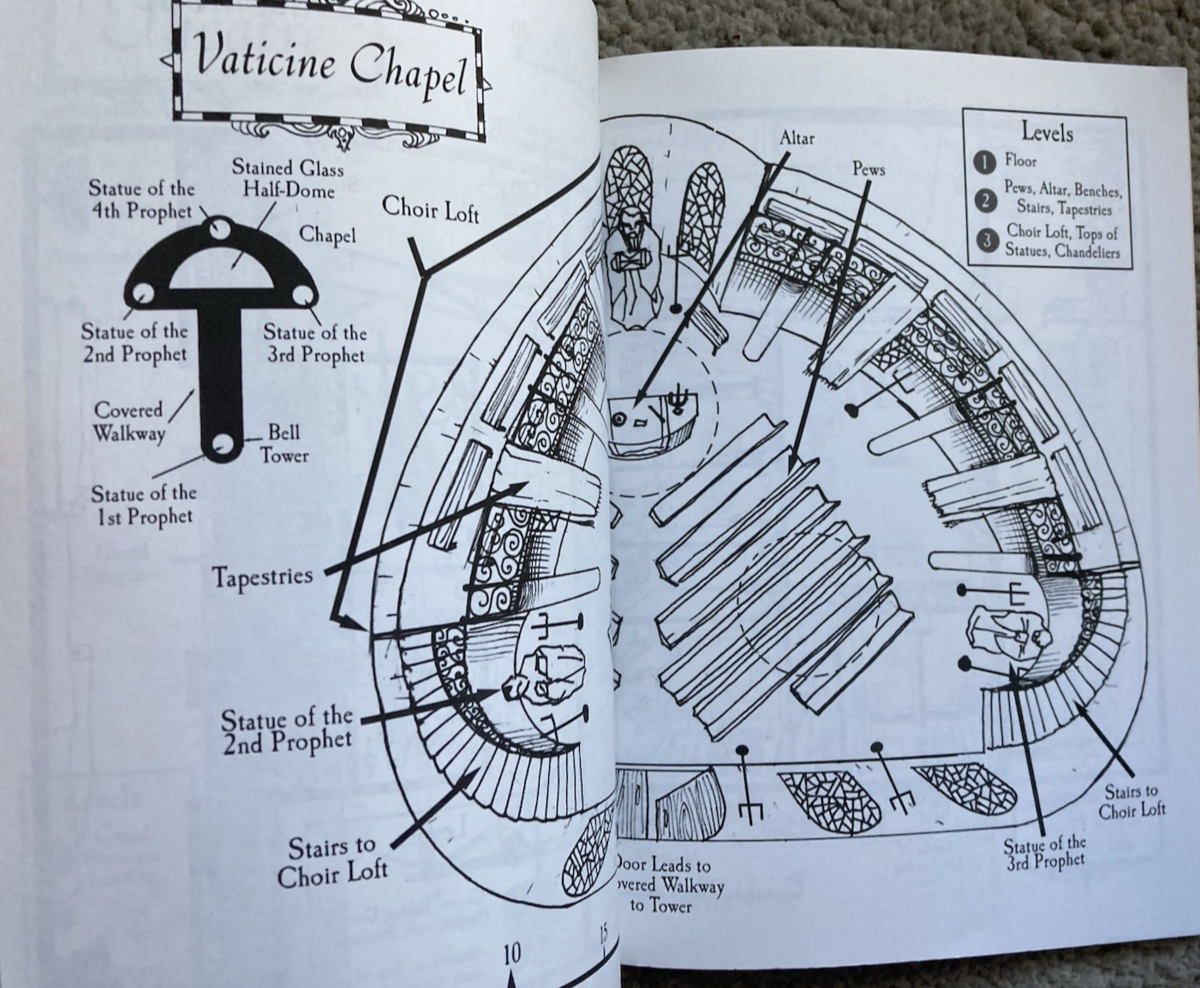 Vaticine Chapel
Stained Glass
Half-Dome
Statue of the
4th Prophet
Chapel
Choir Loft
Statue of the
2nd Prophet
Statue of the
3rd Prophet
Covered
Walkway
Bell
Tower
Statue of the
1st Prophet
Tapestries
Statue of the
2nd Prophet
Stairs to
Choir Loft
10
15
Altar
Pews
Levels
1 Floor
2 Pews, Altar, Benches,
Stairs, Tapestries
3 Choir Loft, Tops of
Statues, Chandeliers
Stairs to
Choir Loft
Statue of the
3rd Prophet
Door Leads to
overed Walkway
to Tower